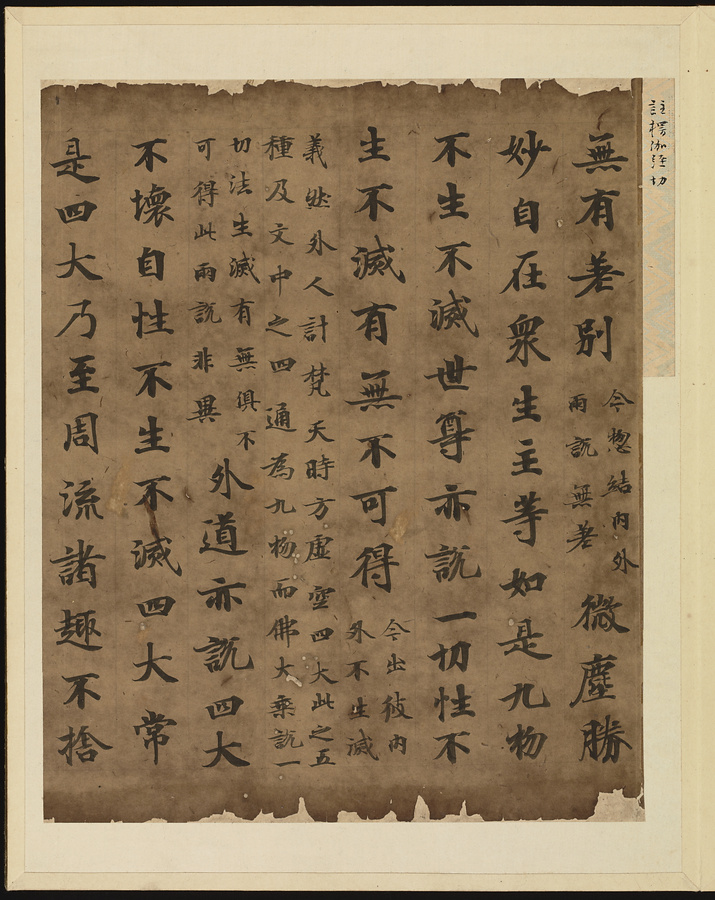 註楞伽經切
無有差別
今惣結內外
兩說無差
微塵勝
妙自在眾生主等如是九物
不生不滅世尊亦說一切性不
生不滅有無不可得
今出彼內
外不生滅
義然外人計梵天時方虛空四大此之五
種及文中之四通為九物而佛大乘說一
切法生滅有無俱不
可得此兩說非異
外道亦說四大
不壞自性不生不滅四大常
是四大乃至周流諸趣不捨